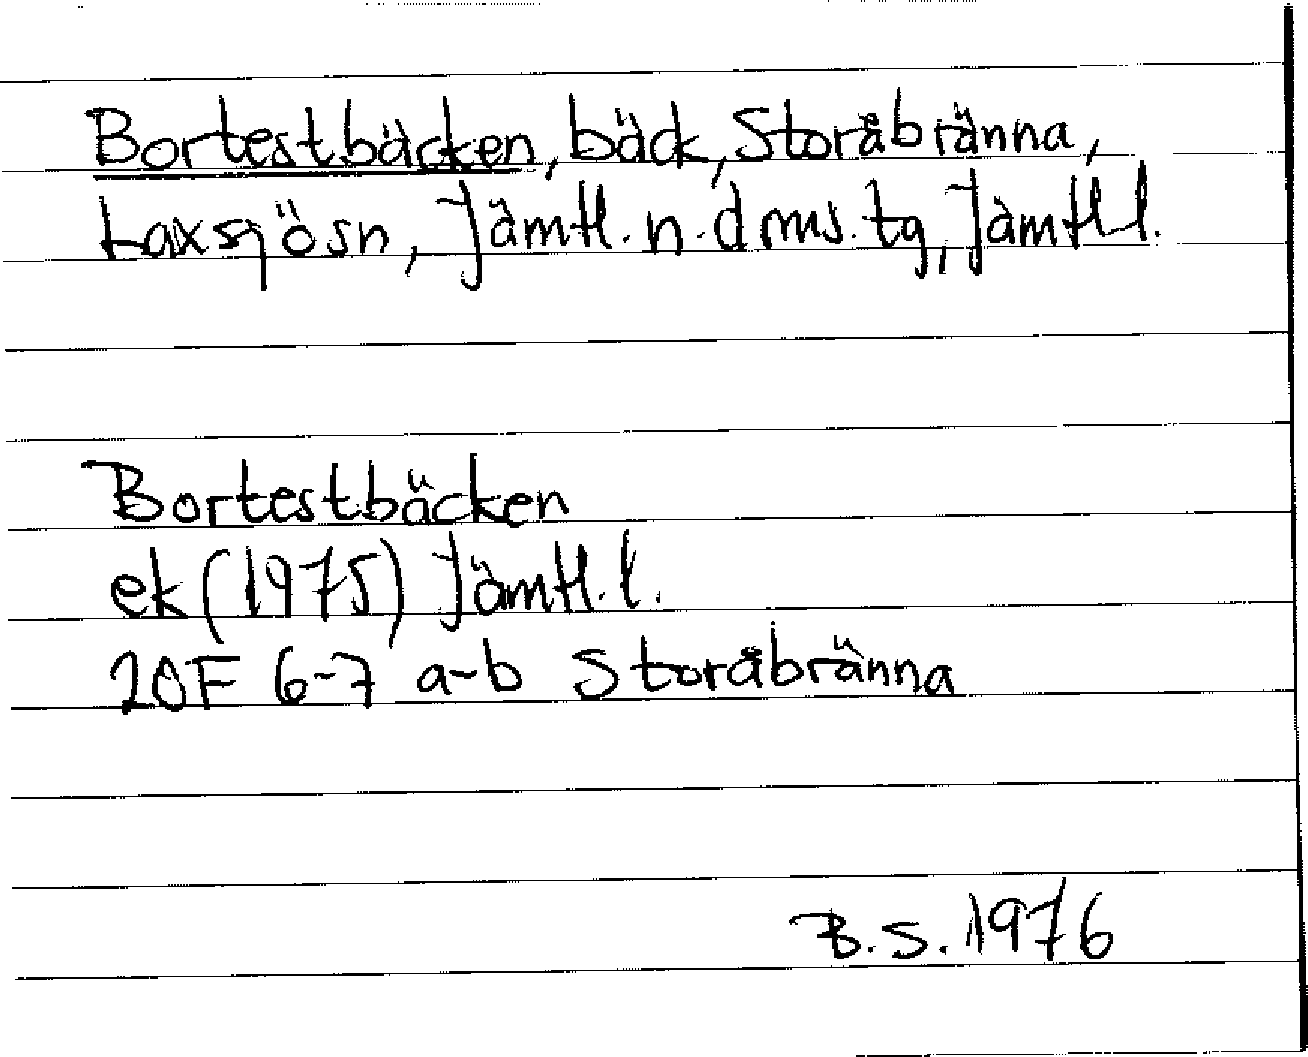 Bortestbäcken, bäck, Storåbränna,
Laxsjösn, Jämtl. n. dms. tg, Jämtl l.
Bortestbäcken
ek (1975) Jämtl. l.
20F 6-7 a-b Storåbränna
B.S. 1976